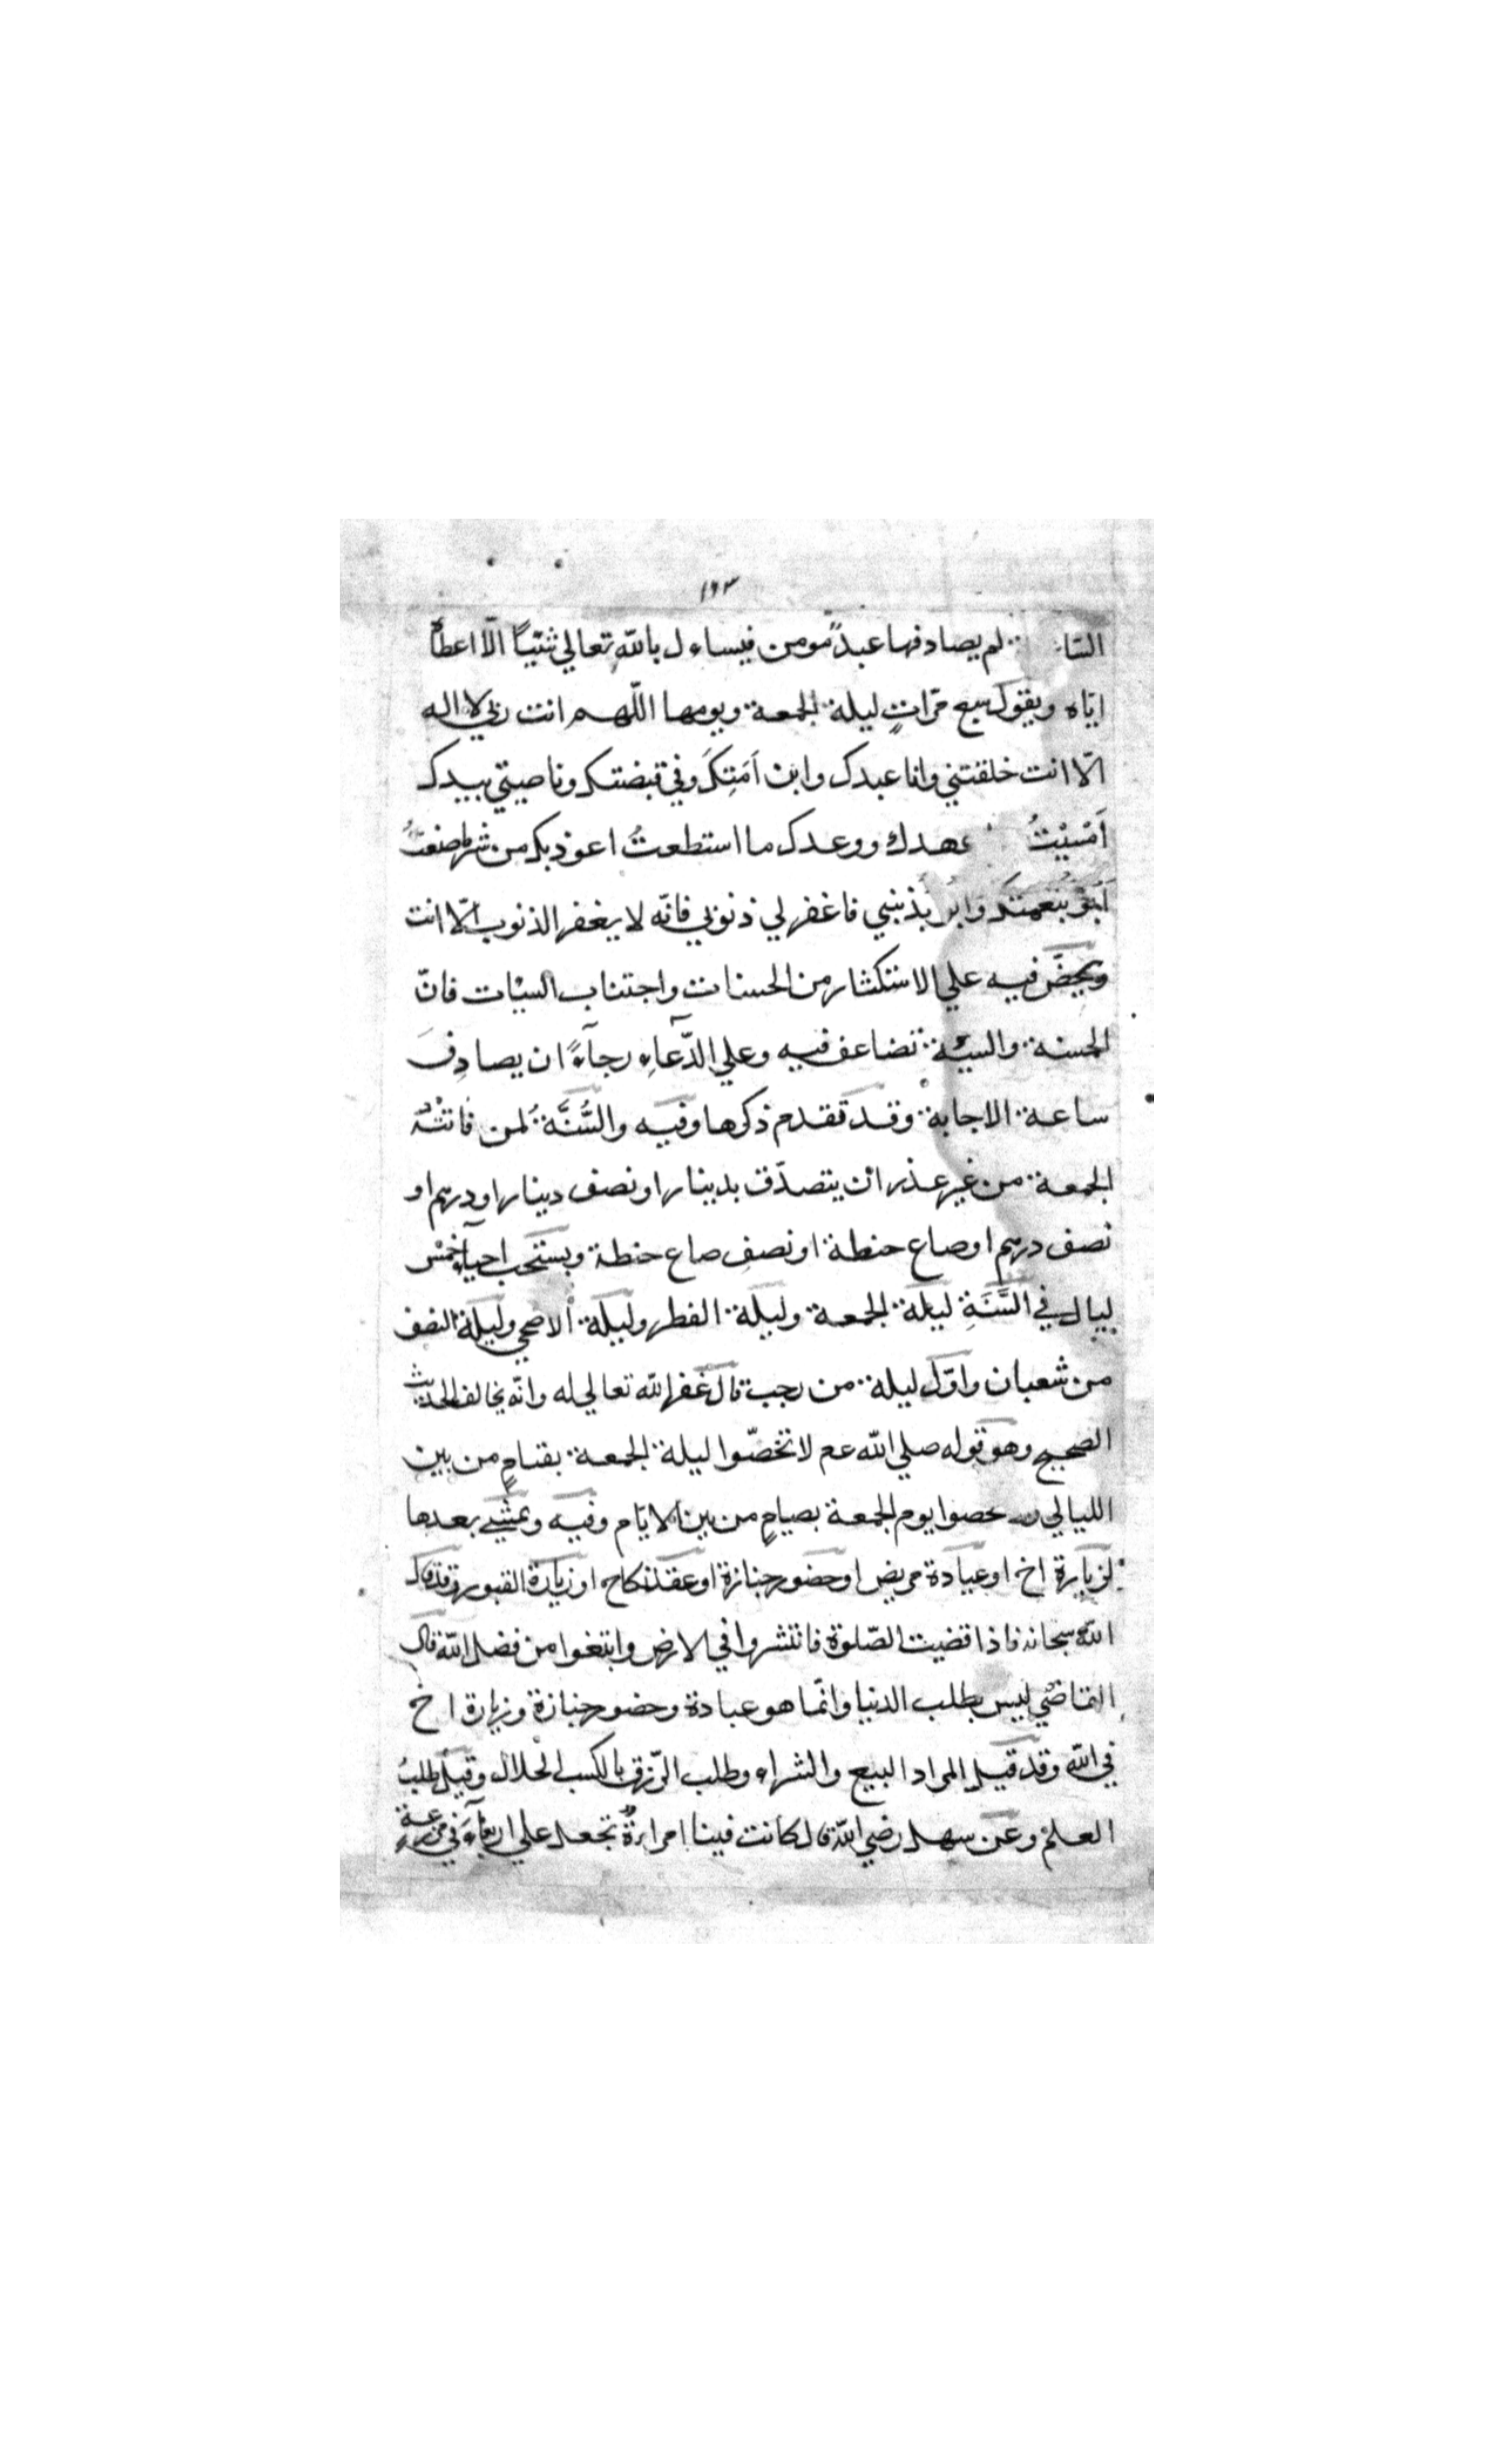 ١٦٣
لم يصادفها عبدٌ مومن فيساءل بالله تعالي شيئاً الّا اعطاه
ايّاه ويقول سبع مرّاتٍ ليلة الجمعة ويومها اللّهم انت ربّي لا اله
الّا انت خلقتني وانا عبدك وابن اَمَتِكَ وفي قبضتك وناصيتي بيدك
اَمْسَيْتُ عهدك ووعدك ما استطعتُ اعوذ بك من شر ما صنعتُ
اَبُوْ بنعمتك وابو بذنبي فاغفر لي ذنوبي فانّه لا يغفر الذنوب الّا انت
ويحضّ فيه علي الاستكثار من الحسنات واجتناب السيّات فانّ
الحسنة والسيّئة تضاعف فيه وعلي الدّعاءِ رجآءً ان يصادِفَ
ساعة الاجابة وقد تقدم ذكرها وفيه والسُّنَّةُ لمن فاتَتْهُ
الجمعة من غير عذر ان يتصدّق بدينار او نصف دينار او درهم او
نصف درهم او صاع حنطة او نصفِ صاع حنطة ويستحب احياء خمْس
ليال في السَّنَةِ ليلة الجمعة وليلة الفطر وليلة الاضحي وليلة النصف
من شعبان واوّل ليلة من رجب قال غفر الله تعالي له وانّه يخالف الحديث
الصحيح وهو قوله صلي الله عم لا تخصّوا ليلة الجمعة بقيامٍ من بين
الليالي ولا تخصوا يوم الجمعة بصيامٍ من بين الايّام وفيه ويمشي بعدها
لزيارة اخ او عيادة مريض او حضور جنازة او عقد نكاح او زيارة القبور وقد قال
الله سبحانه فاذا قضيت الصّلوة فانتشروا في الارض وابتغوا من فضل الله قال
القاضي ليس بطلب الدنيا وانّما هو عبادة وحضور جنازة وزيارة اخ
في الله وقد قيل المراد البيع والشراء وطلب الرّزق بالكسب الحلال وقيل طلبُ
العلم وعن سهل رضي الله قال كانت فينا امراءةٌ تجعل علي اربعآءَ في مزرعةٍ